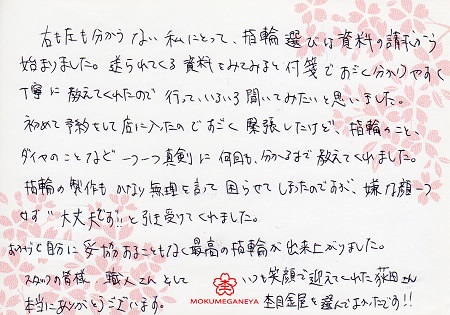 右も左も分からない私にとって、指輪選びは資料の請求から
始まりました。送られてくる資料をみてみると付箋ですごく分かりやすく
丁寧に教えてくれたので行って、いろいろ聞いてみたいと思いました。
初めて予約をして店に入ったのですごく緊張したけど、指輪のこと、
ダイヤのことなど一つ一つ真剣に何回も、分かるまで教えてくれました。
指輪の製作もかなり無理を言って困らせてしまったのですが、嫌な顔一つ
せず"大丈夫です!!"と引き受けてくれました。
おかげで自分に妥協することもなく最高の指輪が出来上がりました。
スタッフの皆様、職人さん、そして いつも笑顔で迎えてくれた荻田さん
本当にありがとうございます。 杢目金屋を選んでよかったです!!
MOKUMEGANEYA